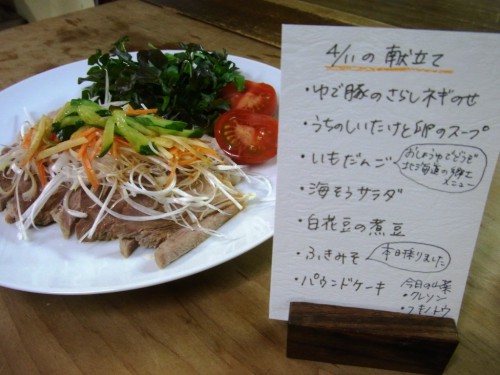 4/11の献立て
・ゆで豚のさらしネギのせ
・うちのしいたけと卵のスープ
・いもだんご
おしょうゆでどうぞ
北海道の郷土
メニュー
・海そうサラダ
・白花豆の煮豆
・ふきみそ
本日採りました
・パウンドケーキ
今日の山菜
・クレソン
・フキノトウ